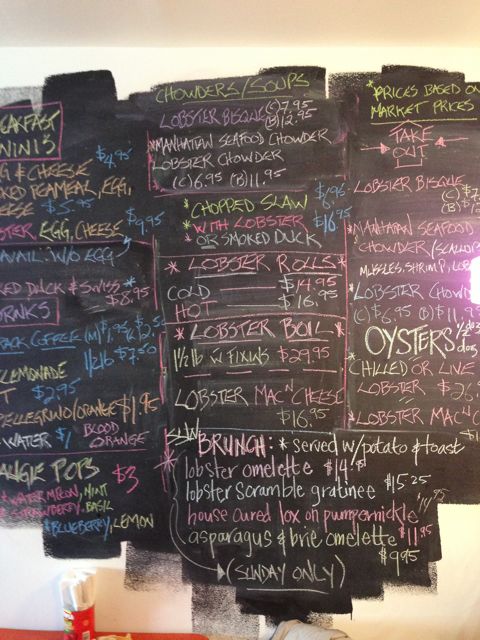 NINIS
& CHEESE $4.95
PEAMEAL, EGG,
CHEESE $5.95
EGG, CHEESE $9.95
AVAIL. W/O EGG
DUCK & SWISS *
$8.95
DRINKS
COFFEE (M) $1.95 (L) $2.50
1/2 lb $7.50
LEMONADE
$2.95
PELLEGRINO/ORANGE $1.95
WATER $1 BLOOD
ORANGE
POPS $3
* WATERMELON, MINT
* STRAWBERRY, BASIL
* BLUEBERRY, LEMON
CHOWDERS/SOUPS
LOBSTER BISQUE (C) 7.95
(B) 12.95
*MANHATTAN SEAFOOD CHOWDER
LOBSTER CHOWDER
(C) 6.95 (B) 11.95
*CHOPPED SLAW $6.95
*WITH LOBSTER $16.95
* OR SMOKED DUCK
* LOBSTER ROLLS *
COLD — $14.95
HOT — $16.95
* LOBSTER BOIL *
1 1/2 lb W FIXINS $29.95
LOBSTER MAC 'N CHEESE
$16.95
BRUNCH: * served w/potato & toast
lobster omelette $14.95
lobster scramble gratinee $15.25
house cured lox on pumpernickle $14.95
asparagus & brie omelette $11.95
$9.95
(SUNDAY ONLY)
*PRICES BASED ON
MARKET PRICES
TAKE
OUT
LOBSTER BISQUE
*MANHATTAN SEAFOOD
CHOWDER/SCALLOPS
MUSSELS, SHRIMP,
*LOBSTER CHOWDER
(C) $6.95 (B) $11.95
OYSTERS 1/2 doz
doz
*CHILLED OR LIVE
LOBSTER
* LOBSTER MAC 'N